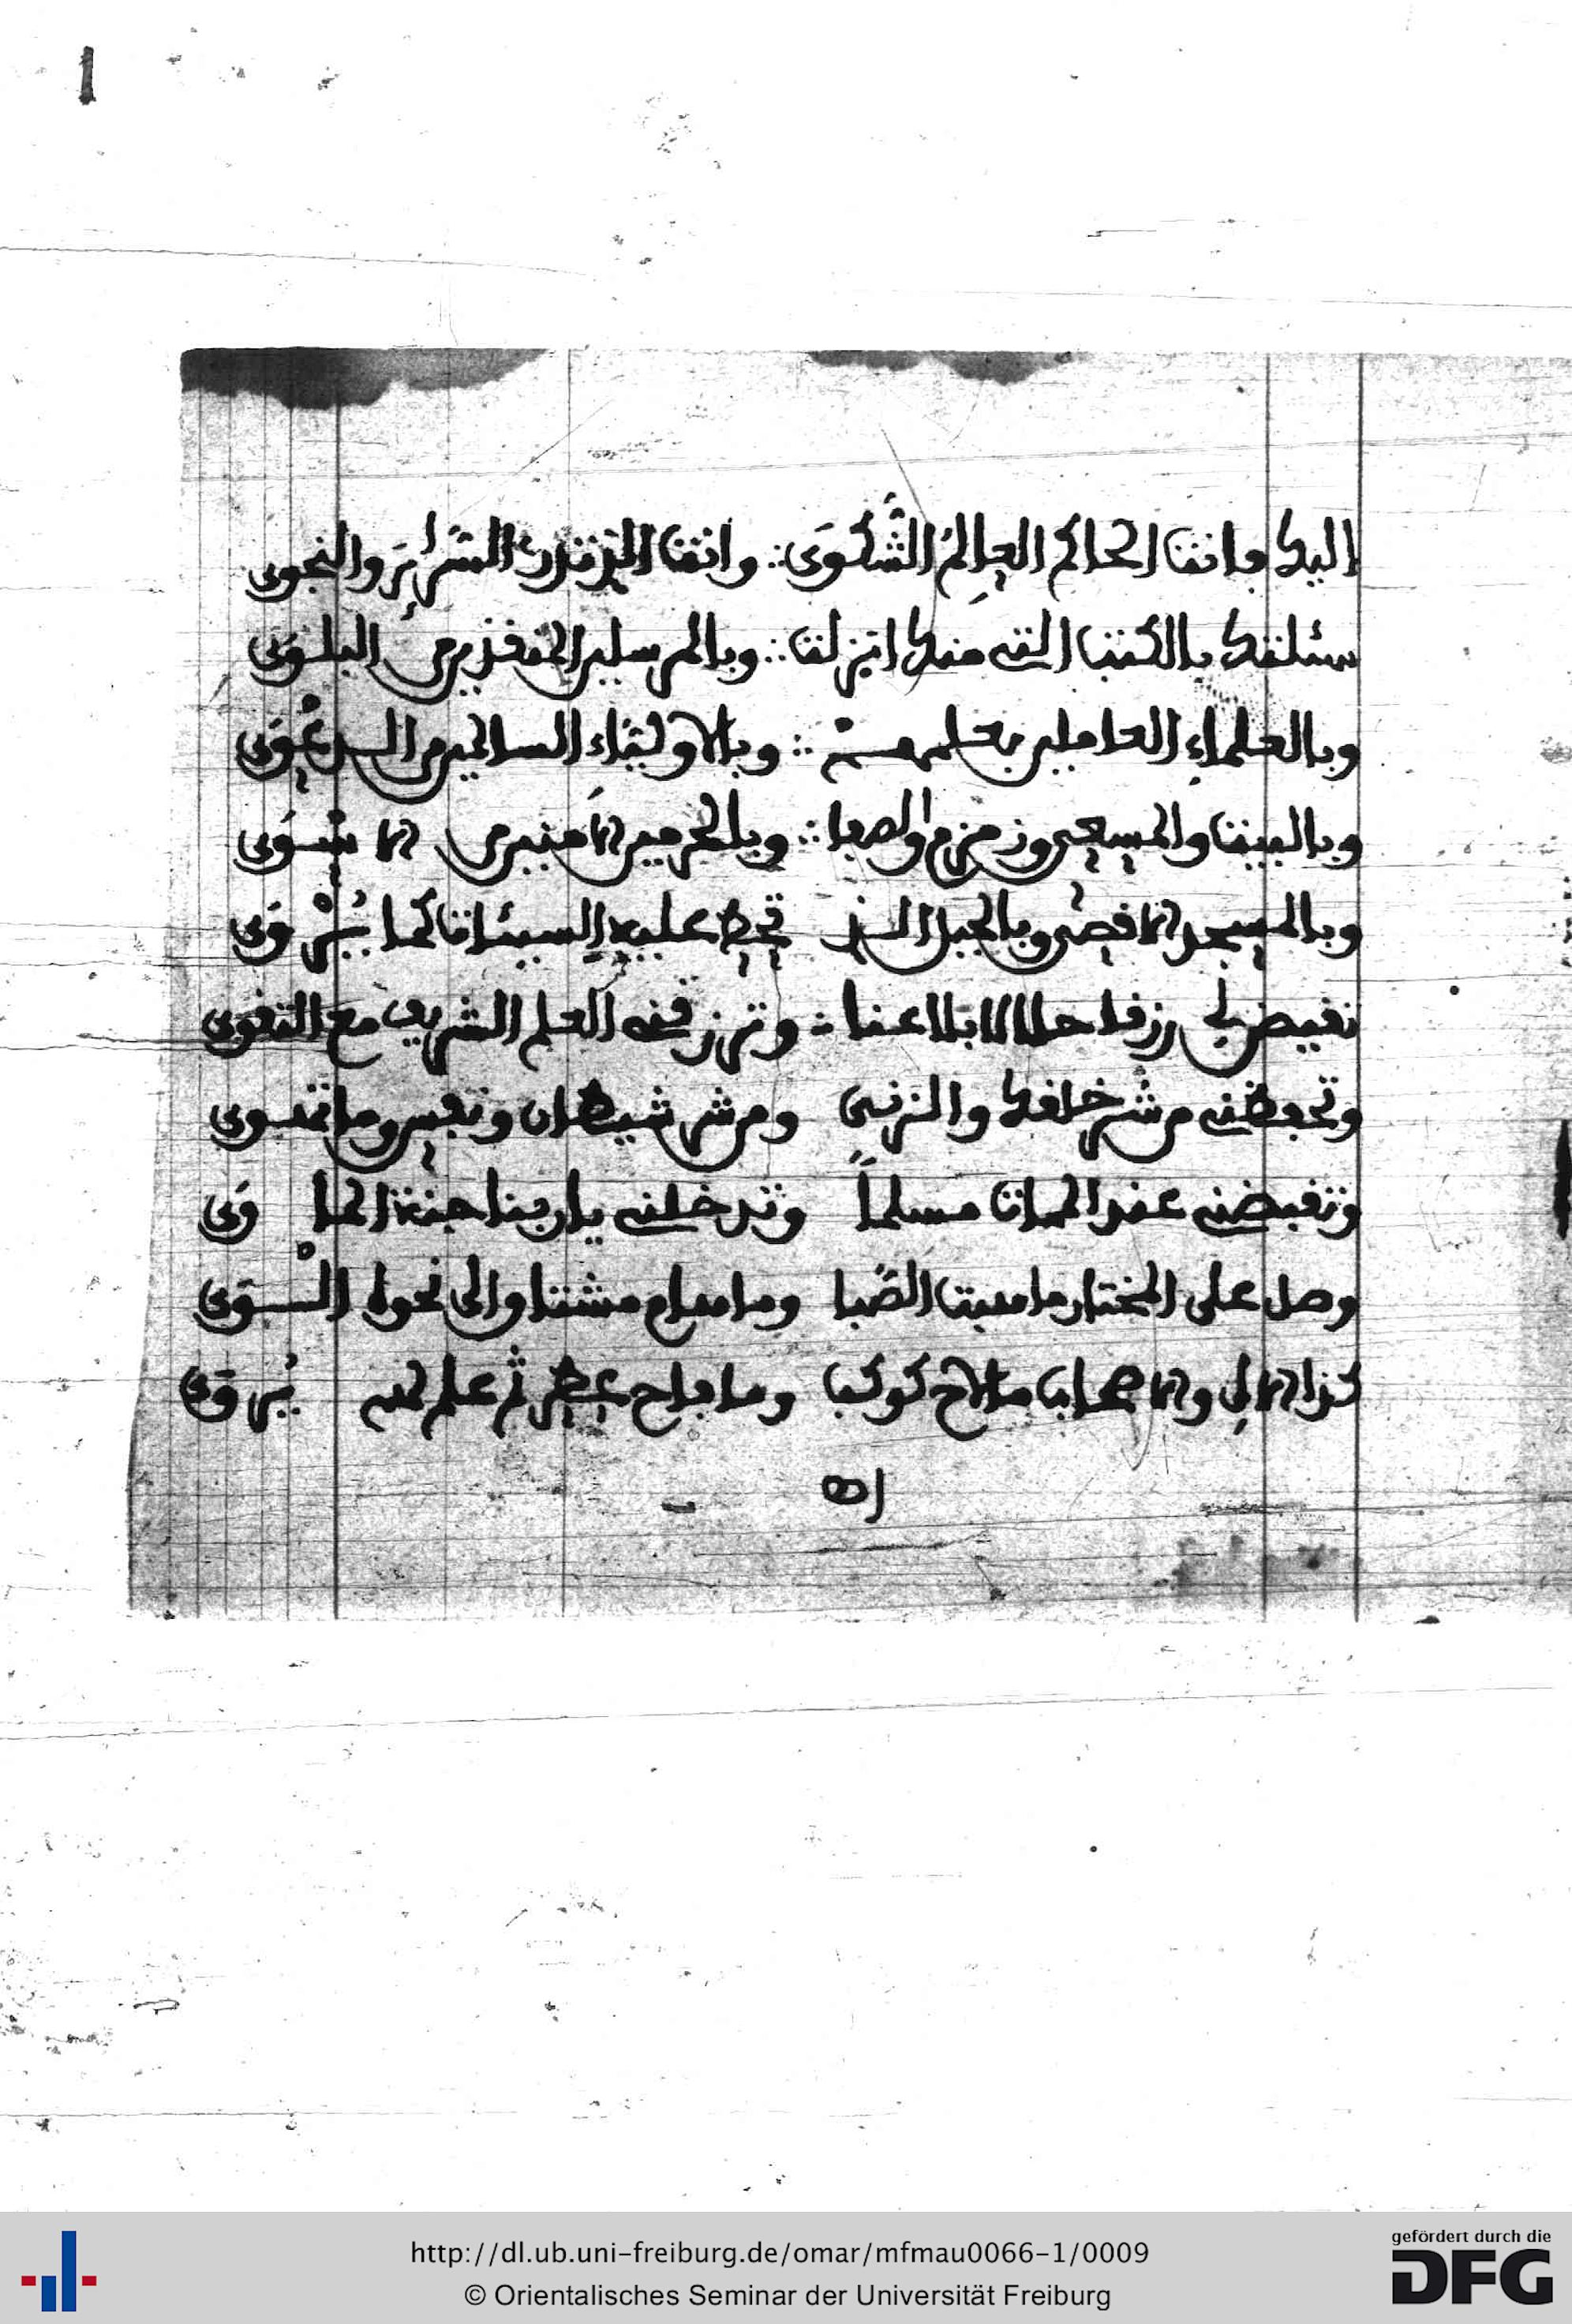 ا
إليك فانت الحاكم العالم الشكوى ∴ وانت الذي تدري السرائر والنجوى
سئلتك بالكتب التي منك انزلت ∴ وبالمرسلين المنقذين من البلوى
وبالعلماء العاملين بعلمهم ∴ وبالاولياء السالمين من الدعوى
وبالبيت والمسعى وزمزم والصفا ∴ وبالحرمين الامنين من الاسوى
وبالمسجد الاقصى وبالجبل الذي تحط عليه السيئات كما يروى
تقيض لي رزقا حلالا بلا عنا ∴ وترزقني العلم الشريف مع التقوى
وتحفظني من شر خلقك والزنى ومن شر شيطان ونفس وما تهوى
وتقبضني عند الممات مسلماً وتدخلني يا ربنا جنة الماوى
وصل على المختار ما هبت الصبا وما هام مشتاق الى نحوك السوى
كذا الال والاصحاب ما لاح كوكب وما فاح عطر ثم علم لهم يروى
اه
http://dl.ub.uni-freiburg.de/omar/mfmau0066-1/0009
© Orientalisches Seminar der Universität Freiburg
gefördert durch die
DFG